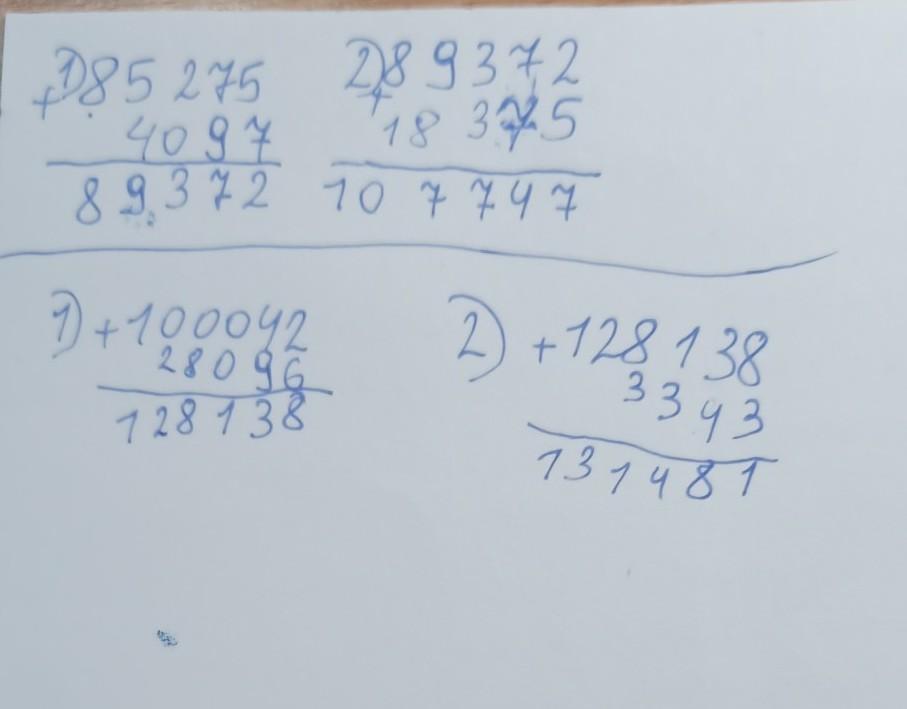 1) 85 275
+ 4097
89372
2) 89372
+ 18 375
10 7 747
1) +100042
28096
128138
2) +128 138
3343
131481